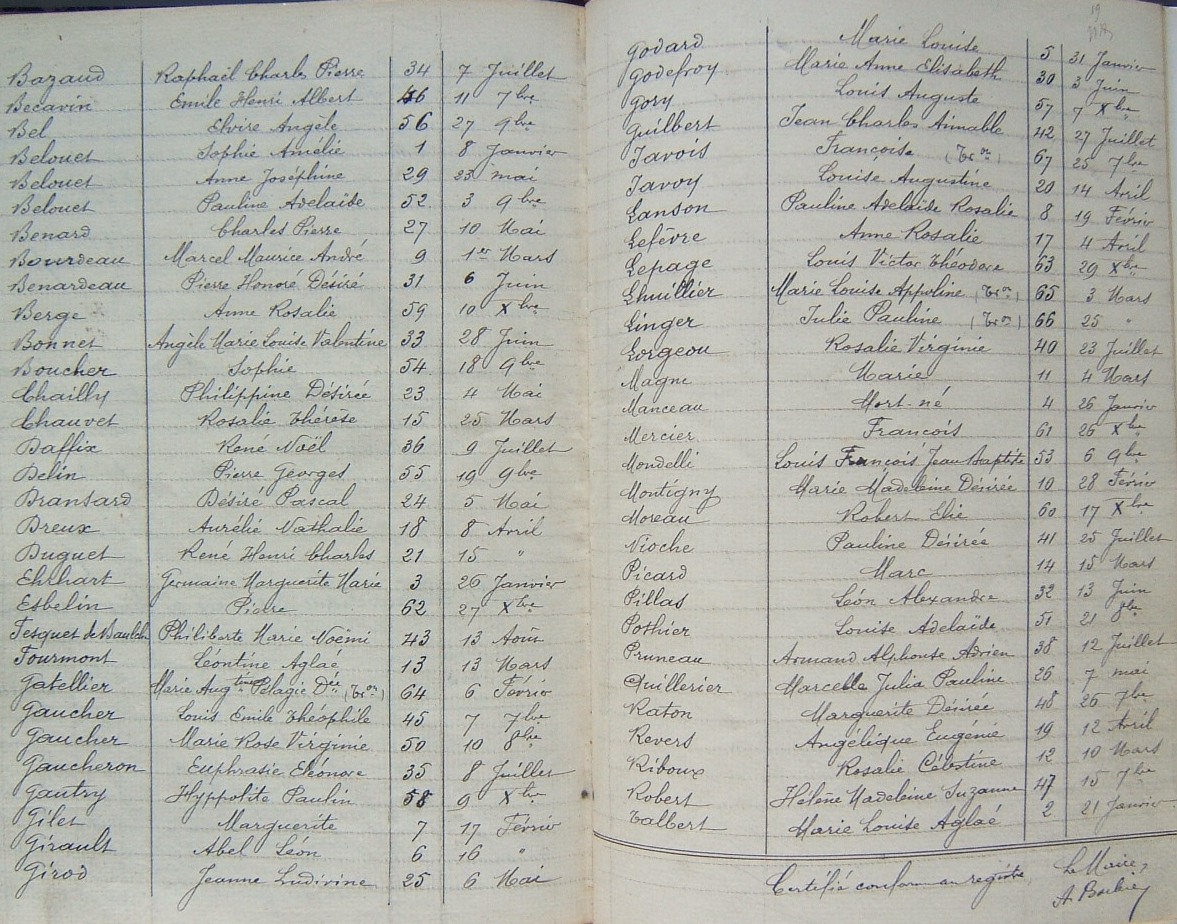 Bazaud Raphaël Charles Pierre 34 7 Juillet
Becavin Emile Henri Albert 46 11 7bre
Bel Elvire Angèle 56 27 9bre
Belouet Sophie Amélie 1 8 Janvier
Belouet Anne Joséphine 29 23 mai
Belouet Pauline Adelaïde 52 3 9bre
Benard Charles Pierre 27 10 Mai
Bourdeau Marcel Maurice André 9 1er Mars
Benardeau Pierre Honoré Désiré 31 6 Juin
Berge Anne Rosalie 59 10 Xbre
Bonnet Angèle Marie Louise Valentine 33 28 Juin
Boucher Sophie 54 18 9bre
Chailly Philippine Désirée 23 4 Mai
Chauvet Rosalie Thérèse 15 25 Mars
Daffix René Noël 36 9 Juillet
Delin Pierre Georges 55 19 9bre
Dransard Désiré Pascal 24 5 Mai
Dreux Aurélie Nathalie 18 8 Avril
Duguet René Henri Charles 21 15 "
Ehrhart Germaine Marguerite Marie 3 26 Janvier
Esbelin Pierre 62 27 Xbre
Fesquet de Baulch Philiberte Marie Noëmi 43 13 Août
Fourmont Léontine Aglaé 13 13 Mars
Gatellier Marie Augtine Pélagie Dée (Tron) 64 6 Févrir
Gaucher Louis Emile Théophile 45 7 7bre
Gaucher Marie Rose Virginie 50 10 8bre
Gaucheron Euphrasie Eléonore 35 8 Juillet
Gautry Hyppolite Paulin 58 9 Xbre
Gilet Marguerite 7 17 Févrir
Girault Abel Léon 6 16 "
Girod Jeanne Ludivine 25 6 Mai
19
Godard Marie Louise 5 31 Janvier
Godefroy Marie Anne Elisabeth 30 3 Juin
Gory Louis Auguste 57 7 Xbre
Guilbert Jean Charles Aimable 42 27 Juillet
Javois Françoise (Tron) 67 25 7bre
Javoy Louise Augustine 20 14 Avril
Lanson Pauline Adelaïde Rosalie 8 19 Févrir
Lefèvre Anne Rosalie 17 4 Avril
Lepage Louis Victor Théodore 63 29 Xbre
Lhuillier Marie Louise Appoline (Tron) 65 3 Mars
Linger Julie Pauline (Tron) 66 25 "
Lorgeou Rosalie Virginie 40 23 Juillet
Magne Marie 11 4 Mars
Manceau Mort-né 4 26 Janvir
Mercier François 61 26 Xbre
Mondelli Louis François Jean Baptiste 53 6 9bre
Montigny Marie Madeleine Désirée 10 28 Févrir
Moreau Robert Elie 60 17 Xbre
Nioche Pauline Désirée 41 25 Juillet
Picard Marc 14 15 Mars
Pillas Léon Alexandre 32 13 Juin
Pothier Louise Adelaïde 51 21 8bre
Pruneau Armand Alphonse Adrien 38 12 Juillet
Quillerier Marcelle Julia Pauline 26 7 mai
Raton Marguerite Désirée 48 26 7bre
Revers Angélique Eugénie 19 12 Avril
Riboux Rosalie Célestine 12 10 Mars
Robert Hélène Madeleine Suzanne 47 15 7bre
Talbert Marie Louise Aglaé 2 21 Janvir
Certifié conforme au registre,
Le Maire,